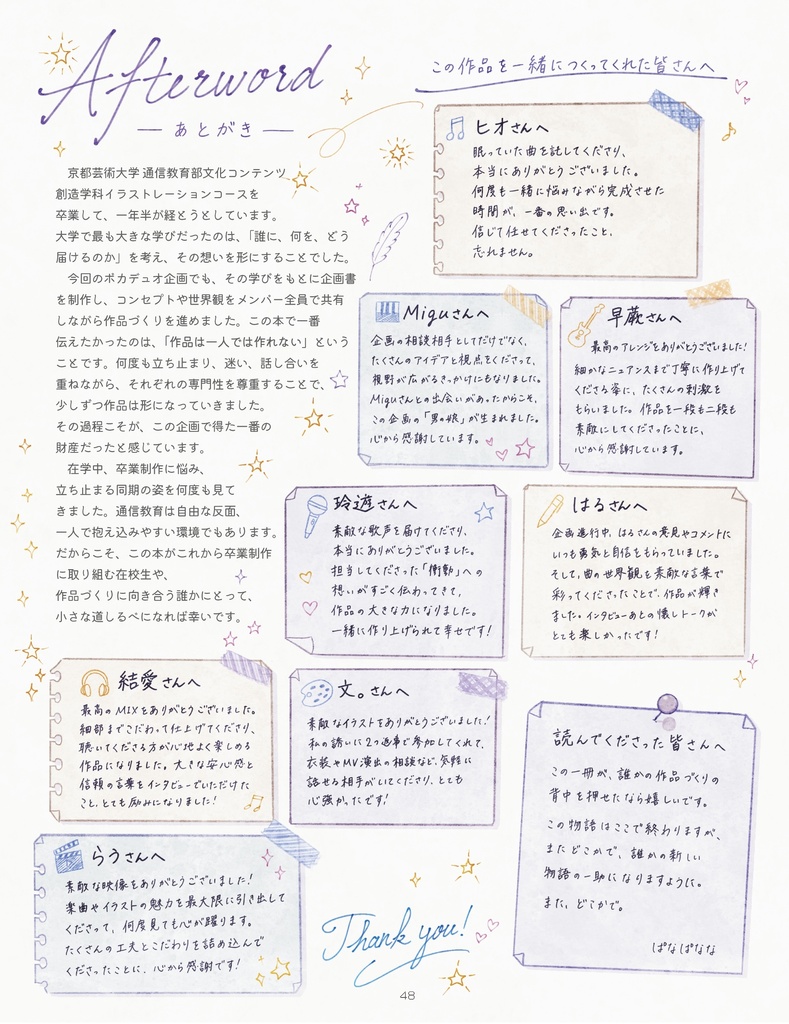 Afterword
― あとがき ―
京都芸術大学 通信教育部文化コンテンツ
創造学科イラストレーションコースを
卒業して、一年半が経とうとしています。
大学で最も大きな学びだったのは、「誰に、何を、どう
届けるのか」を考え、その想いを形にすることでした。
今回のボカデュオ企画でも、その学びをもとに企画書
を制作し、コンセプトや世界観をメンバー全員で共有
しながら作品づくりを進めました。この本で一番
伝えたかったのは、「作品は一人では作れない」という
ことです。何度も立ち止まり、迷い、話し合いを
重ねながら、それぞれの専門性を尊重することで、
少しずつ作品は形になっていきました。
その過程こそが、この企画で得た一番の
財産だったと感じています。
在学中、卒業制作に悩み、
立ち止まる同期の姿を何度も見て
きました。通信教育は自由な反面、
一人で抱え込みやすい環境でもあります。
だからこそ、この本がこれから卒業制作
に取り組む在校生や、
作品づくりに向き合う誰かにとって、
小さな道しるべになれば幸いです。
この作品を一緒につくってくれた皆さんへ
ヒオさんへ
眠っていた曲を託してくださり、
本当にありがとうございました。
何度も一緒に悩みながら完成させた
時間が、一番の思い出です。
信じて任せてくださったこと、
忘れません。
Miguさんへ
企画の相談相手としてだけでなく、
たくさんのアイデアと視点をくださって、
視野が広がるきっかけにもなりました。
Miguさんとの出会いがあったからこそ、
この企画の「男の娘」が生まれました。
心から感謝しています。
早蕨さんへ
最高のアレンジをありがとうございました!
細かなニュアンスまで丁寧に作り上げて
くださる姿に、たくさんの刺激を
もらいました。作品を一段も二段も
素敵にしてくださったことに、
心から感謝しています。
玲遊さんへ
素敵な歌声を届けてくださり、
本当にありがとうございました。
担当してくださった「衝動」への
想いがすごく伝わってきて、
作品の大きな力になりました。
一緒に作り上げられて幸せです!
はるさんへ
企画進行中、はるさんの意見やコメントに
いつも勇気と自信をもらっていました。
そして、曲の世界観を素敵な言葉で
彩ってくださったことで、作品が輝き
ました。インタビューあとの懐しトークが
とても楽しかったです!
結愛さんへ
最高のMIXをありがとうございました。
細部までこだわって仕上げてくださり、
聴いてくださる方が心地よく楽しめる
作品になりました。大きな安心感と
信頼の言葉をインタビューでいただけた
こと、とても励みになりました!
文。さんへ
素敵なイラストをありがとうございました!
私の誘いに2つ返事で参加してくれて、
衣装やMV演出の相談など、気軽に
話せる相手がいてくださり、とても
心強かったです!
らうさんへ
素敵な映像をありがとうございました!
楽曲やイラストの魅力を最大限に引き出して
くださって、何度見ても心が躍ります。
たくさんの工夫とこだわりを詰め込んで
くださったことに、心から感謝です!
読んでくださった皆さんへ
この一冊が、誰かの作品づくりの
背中を押せたなら嬉しいです。
この物語はここで終わりますが、
またどこかで、誰かの新しい
物語の一助になりますように。
また、どこかで。
ぱなぱなな
Thank you!
48